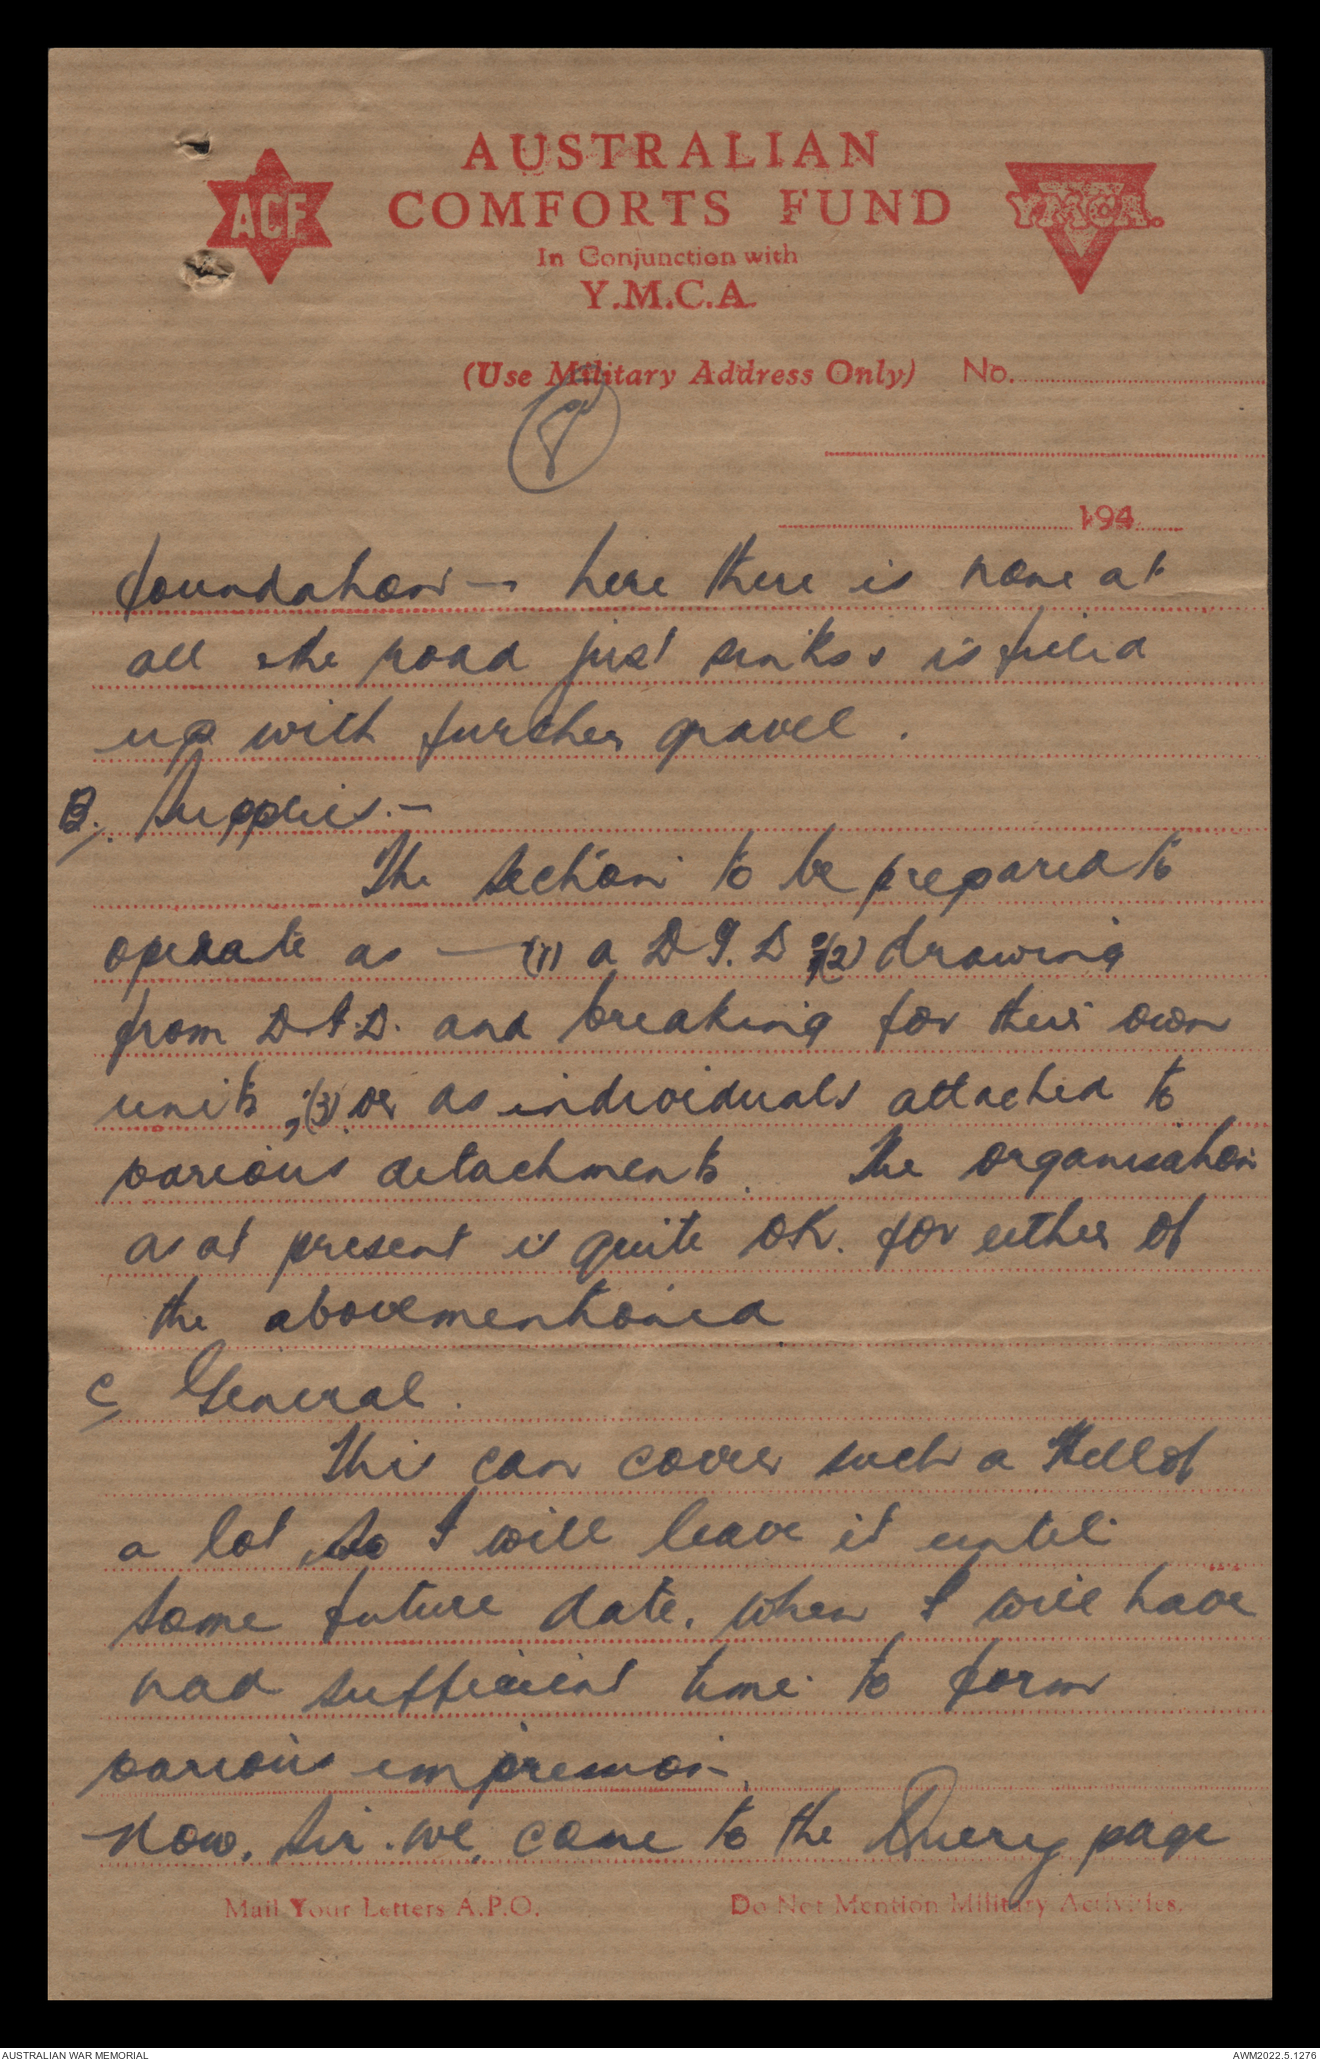 AUSTRALIAN
COMFORTS FUND
ACF
YMCA.
In Conjunction with
Y.M.C.A.
(Use Military Address Only) No.
8
194
foundation – here there is none at
all the road just sinks & is filled
up with further gravel.
B. Supplies.–
The section to be prepared to
operate as – (1) a D.I.D (2) drawing
from D.I.D. and breaking for their own
units, (3) or as individuals attached to
various detachments. The organisation
as at present is quite OK. for either of
the abovementioned
C General.
This can cover such a Hell of
a lot so I will leave it until
some future date. When I will have
had sufficient time to form
various impression.
Now, Sir. we, come to the Query page
Mail Your Letters A.P.O. Do Not Mention Military Activities.
AUSTRALIAN WAR MEMORIAL AWM2022.5.1276